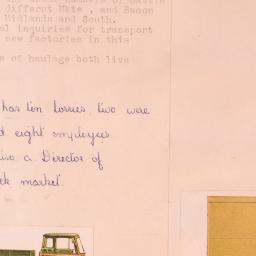 differnt Mkts , and Bacon
Midlands and South.
al inquiries for transport
new factories in this
e of haulage both live
has ten lorries, two were
eight employees
a Director of
market.